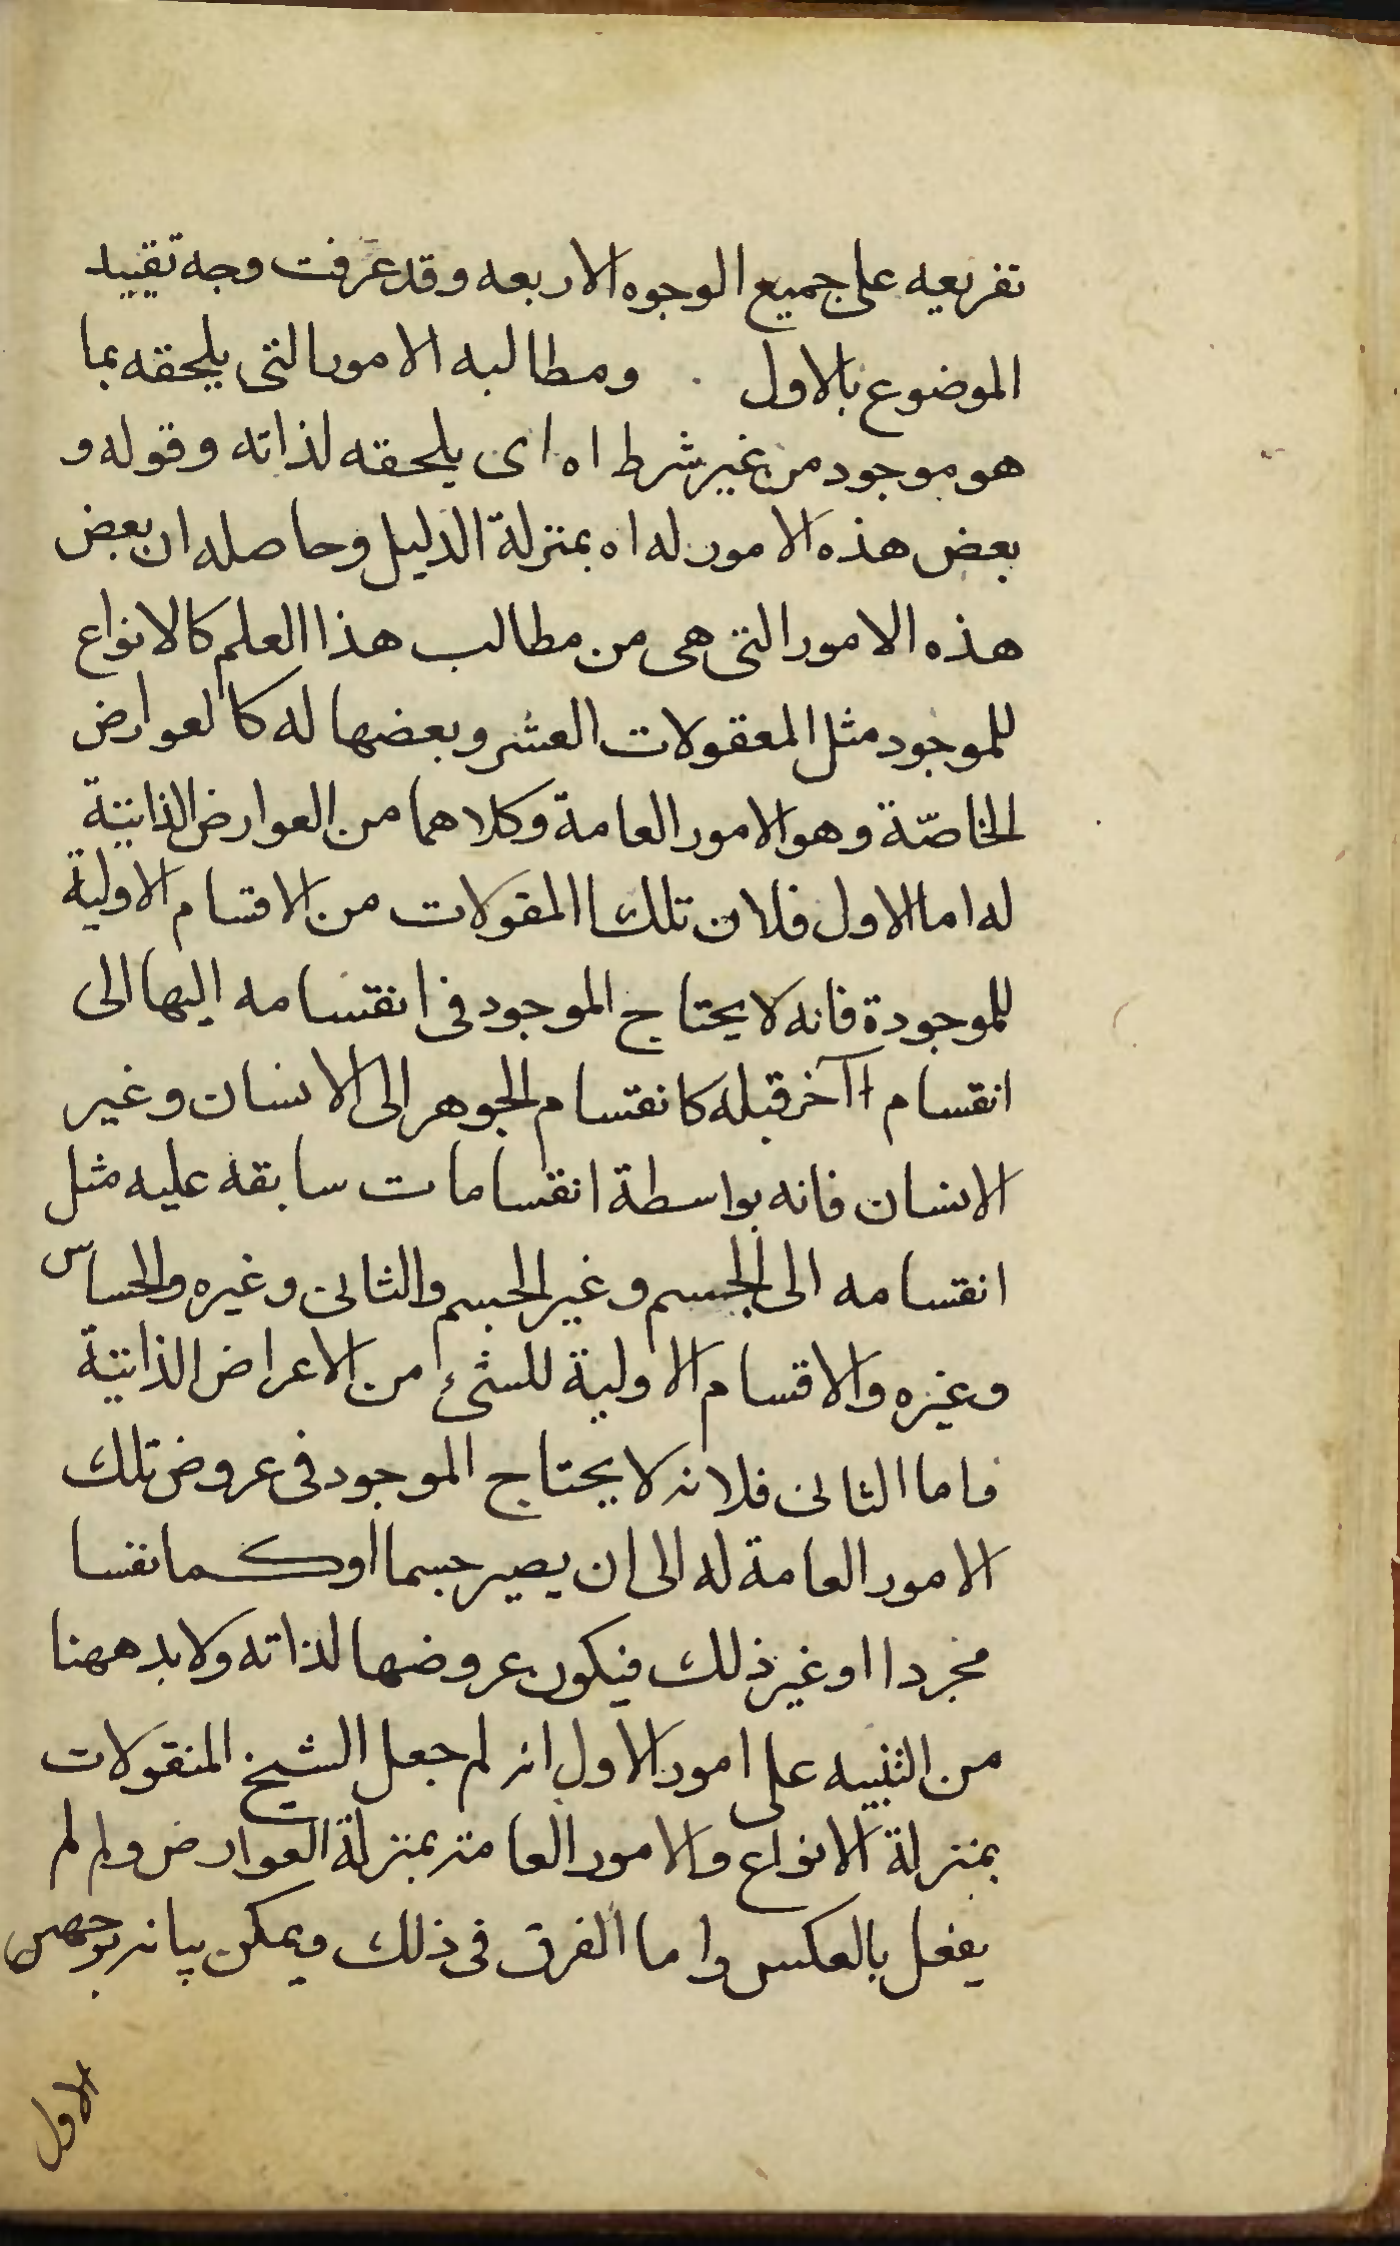 تفريعه على جميع الوجوه الاربعه وقد عرفت وجه تقييد
الموضوع بالاول . ومطالبه الامور التى يلحقه بما
هو موجود من غير شرط اه اى يلحقه لذاته وقوله و
بعض هذه الامور له اه بمنزلة الدليل وحاصله ان بعض
هذه الامور التى هى من مطالب هذا العلم كالانواع
للموجود مثل المعقولات العشر وبعضها له كالعوارض
الخاصّة وهو الامور العامة وكلاهما من العوارض الذاتية
له اما الاول فلان تلك المقولات من الاقسام الاولية
للموجودة فانه لا يحتاج الموجود فى انقسامه اليها الى
انقسام اآخر قبله كانقسام الجوهر الى الانسان وغير
الانسان فانه بواسطة انقسامات سابقه عليه مثل
انقسامه الى الجسم وغير الجسم والثانى وغيره والحساس
وغيره والاقسام الاولية للشئ من الاعراض الذاتية
فاما الثانى فلانه لا يحتاج الموجود فى عروض تلك
الامور العامة له الى ان يصير جسما او كما نفسا
مجردا او غير ذلك فيكون عروضها لذاته ولا بد ههنا
من التنبيه على امور الاول انه لم جعل الشيخ المنقولات
بمنزلة الانواع والامور العامة بمنزلة العوارض ولم لم
يفعل بالعكس واما الفرق فى ذلك ويمكن بيانه بوجهين
الاول